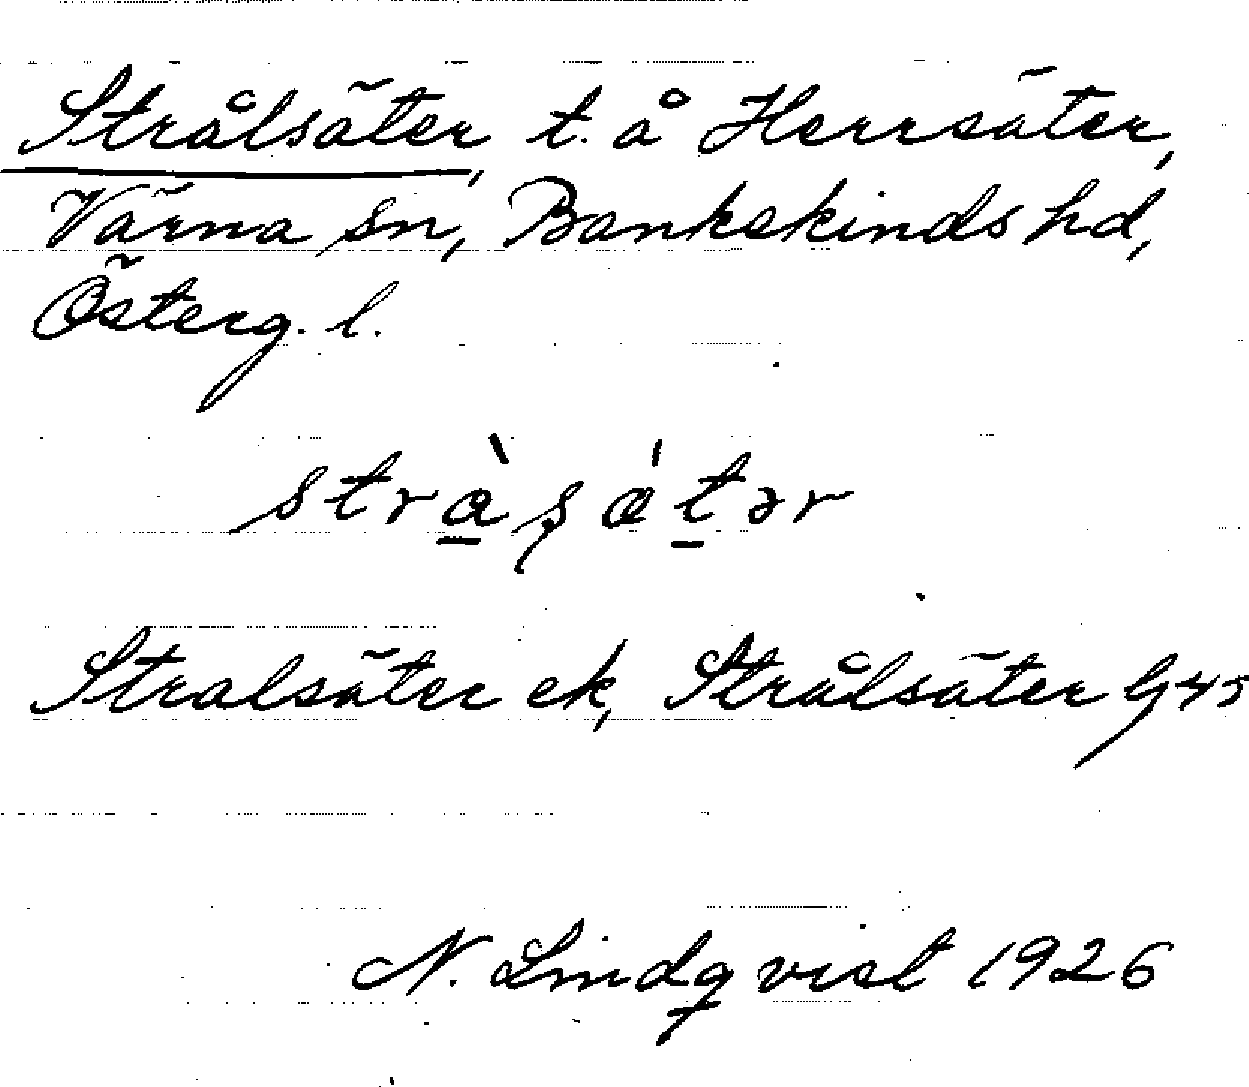 Strålsäter, t. å Herrsäter,
Värna sn, Bankekinds hd,
Österg. l.
Stralsäter ek, Strålsäter G45
N. Lindqvist 1926